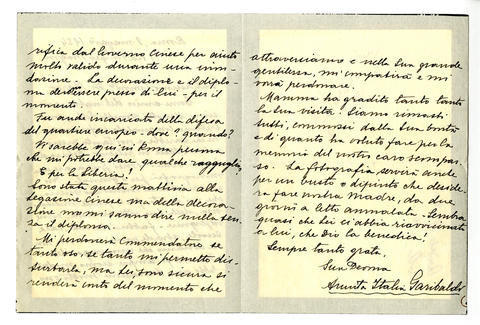 ufica dal Governo Cinese per aiuto
molto valido durante una inon-
dazione. La decorazione e il diplo-
ma dev'essere presso di Lui - per il
momento.
Fu anche incaricato della difesa
del quartiere europeo - dove? quando?
Vi sarebbe qui in Roma persona
che mi potrebbe dare qualche ragguaglio,
E per la Liberia!
Sono stata questa mattina alla
Legazione Cinese ma della decora-
zione non mi sanno dire nulla sen-
za il diploma.
Mi perdonerà Commendatore se
tanto oso, se tanto mi permetto dis-
turbarla, ma Lei, sono sicura si
renderà conto del momento che
attraversiamo e nella Sua grande
gentilezza, mi compatirà e mi
vorrà perdonare.
Mamma ha gradito tanto tanto
la Sua visita! Siamo rimasti
tutti, commossi dalla Sua bontà
e di quanto ha voluto fare per la
memoria del nostro caro scompar-
so. La fotografia servirà anche
per un busto o dipinto che deside-
ra fare nostra Madre, da due
giorni a letto ammalata. Sembra
quasi che Lei ci abbia riavvicinata
a Lui, che Dio la benedica!
Sempre tanto grata,
Sua Devma
Anita Italia Garibaldi